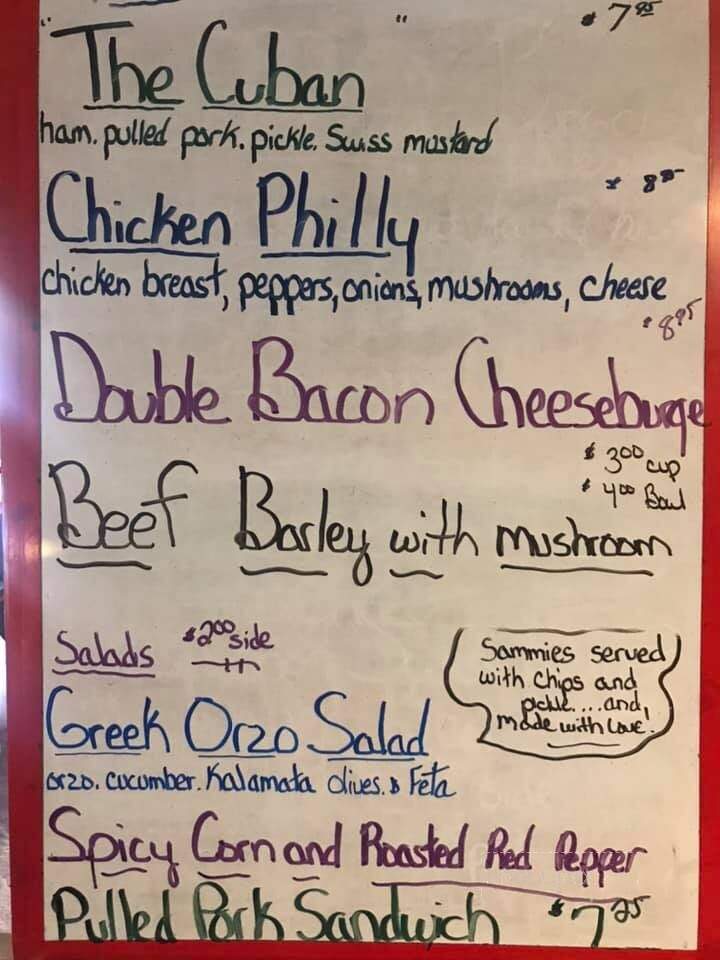 " " $7.95
The Cuban
ham. pulled pork. pickle. Swiss mustard
Chicken Philly
chicken breast, peppers, onions, mushrooms, cheese
$8.95
Double Bacon Cheeseburge
$3.00 cup
$4.00 Bowl
Beef Barley with mushroom
Salads $2.00 side
Sammies served
with chips and
pickle....and,
made with Love!
Greek Orzo Salad
orzo. cucumber. Kalamata Olives. & Feta
Spicy Corn and Roasted Red Pepper
Pulled Pork Sandwich $7.25